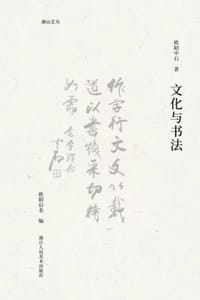 湖山艺丛
欧阳中石 著
文化与书法
作字行文文以载
道以书焕采切时
如需
中石
欧阳启名 编
浙江人民美术出版社